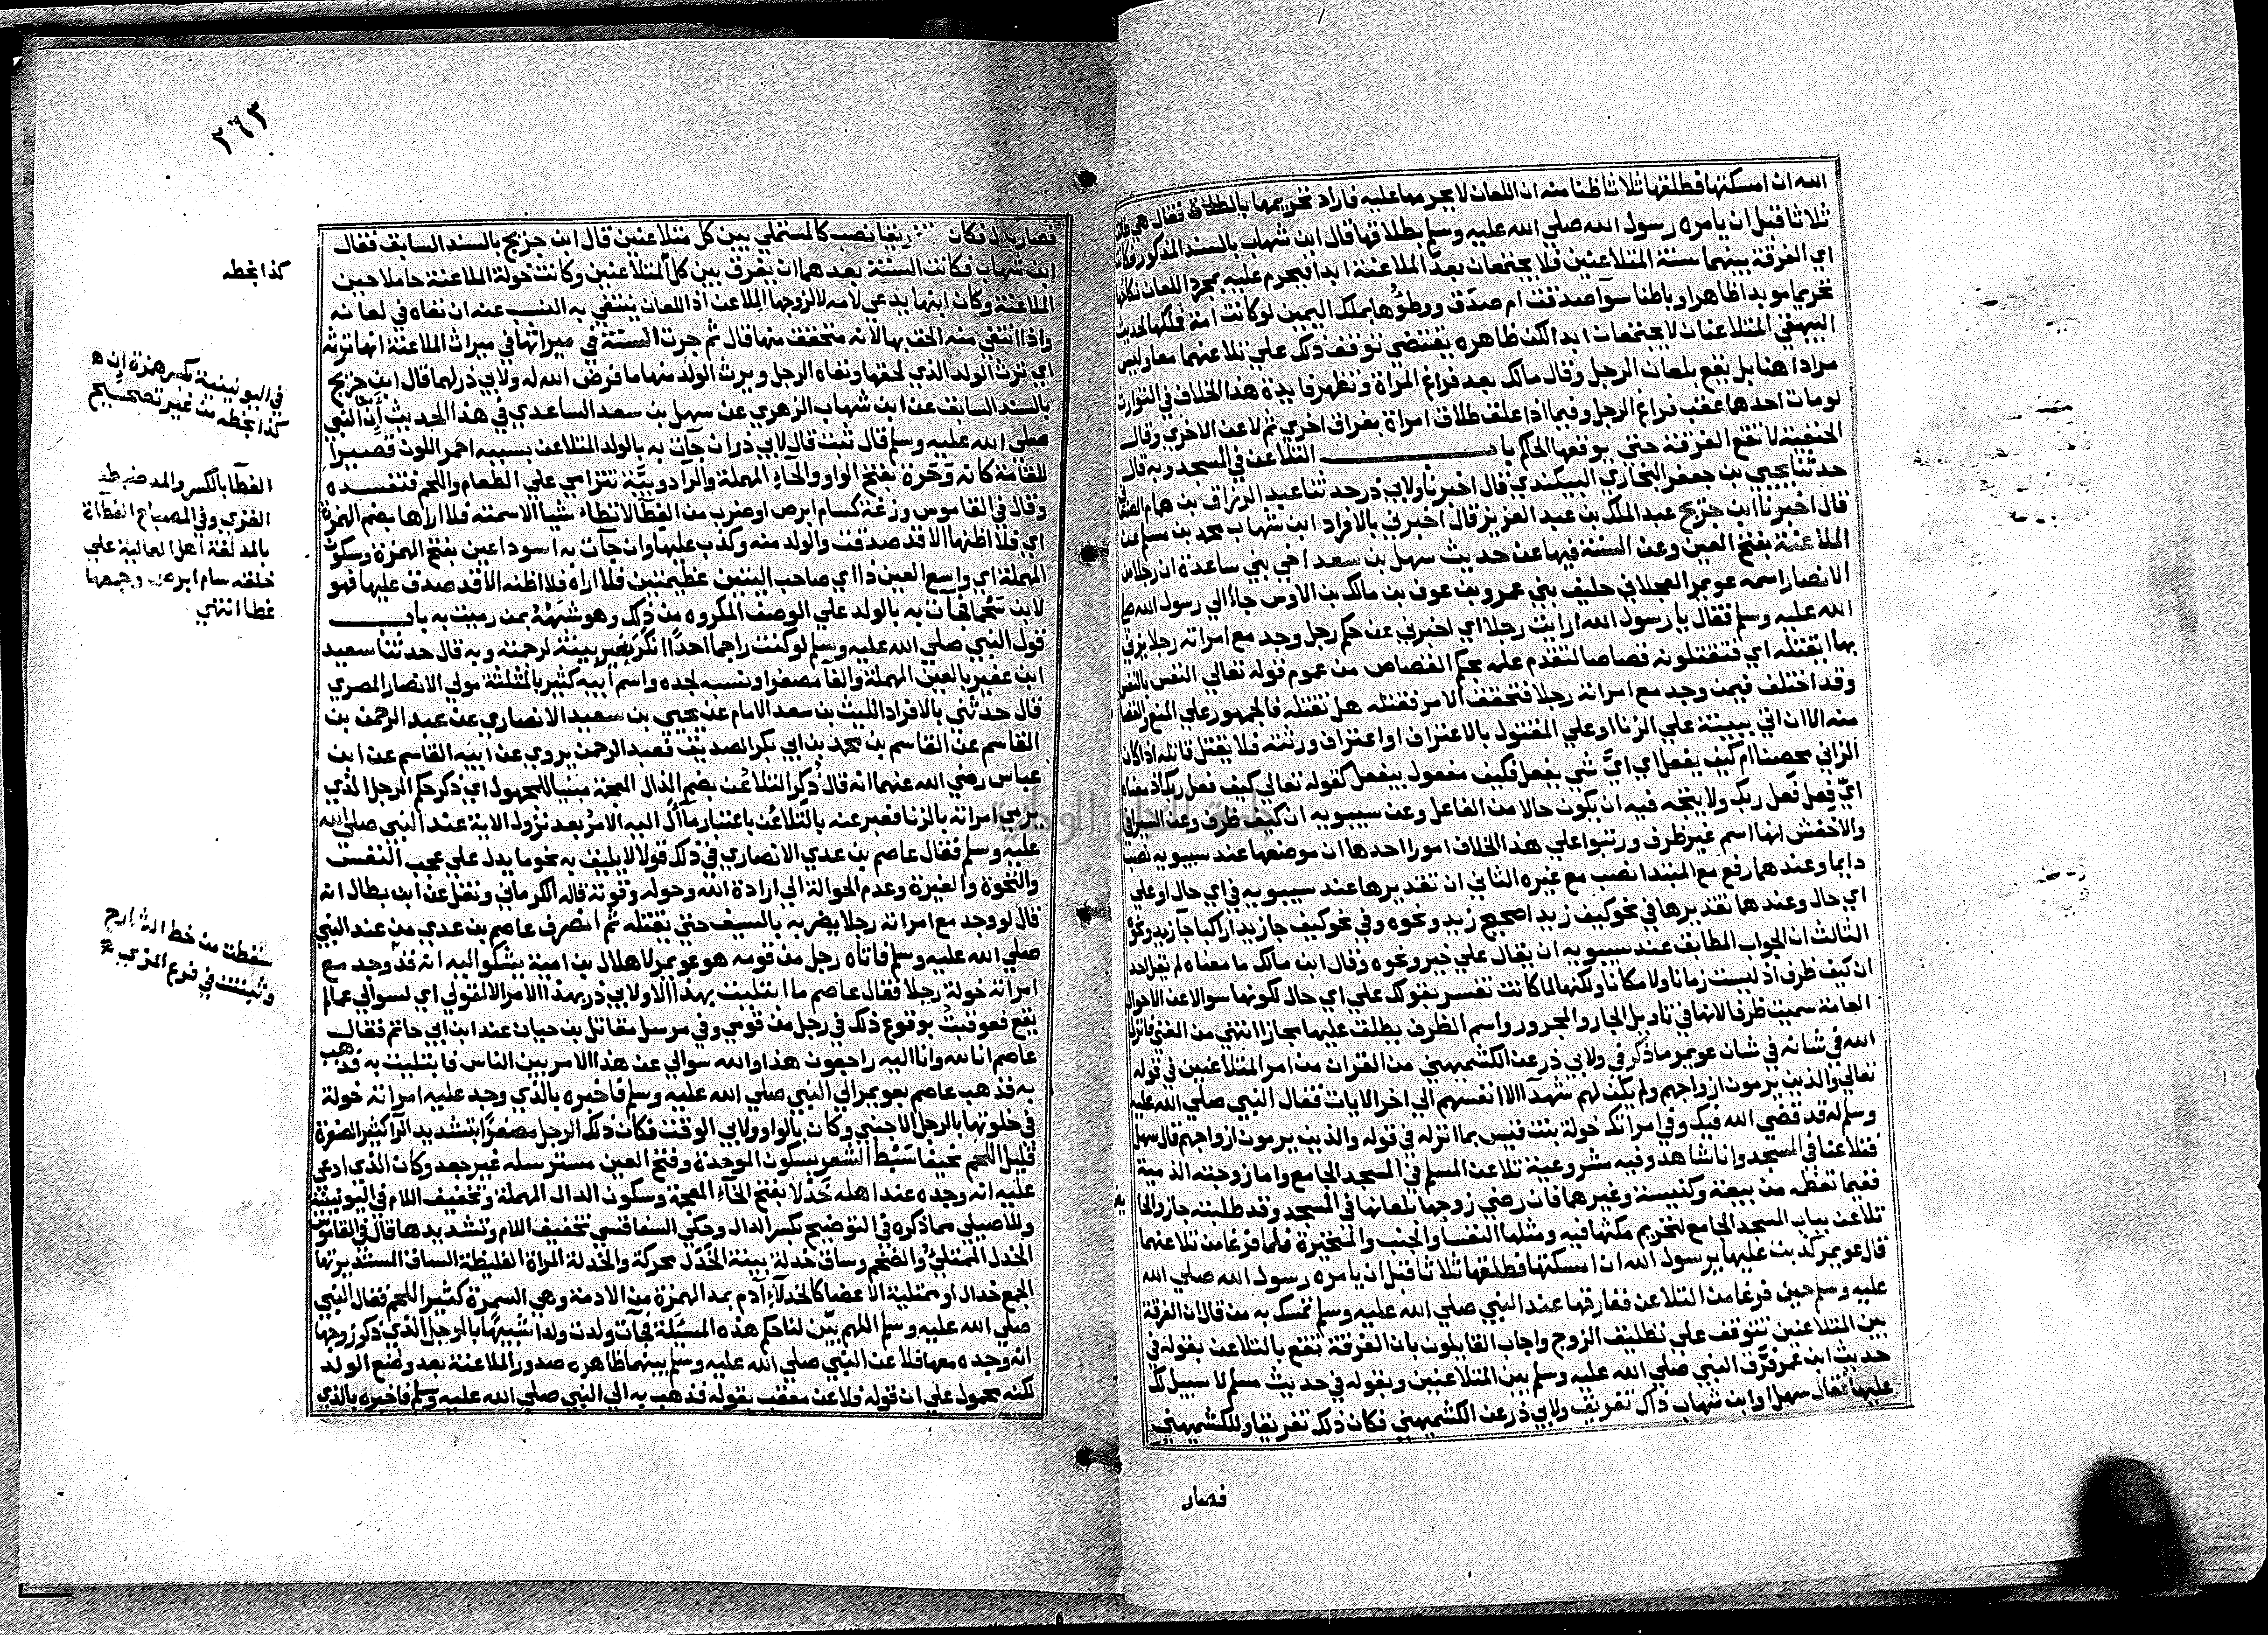 الله ان امسكتها فطلقها ثلاثا ظنا منه ان اللعان لا يحرمها عليه فاراد تحريمها بالطلاق فقال هي طالق
ثلاثا قبل ان يامره رسول الله صلي الله عليه وسلم بطلاقها قال ابن شهاب بالسند المذكور فكانت
اي الفرقة بينهما سنة المتلاعنين فلا يجتمعان بعد الملاعنة ابدا فيحرم عليه بمجرد اللعان نكاحها
تحريما موبدا ظاهرا وباطنا سوآ صدقت ام صدق ووطؤها بملك اليمين لو كانت امة فملكها لحديث
البيهقي المتلاعنان لا يجتمعان ابدا لكن ظاهره يقتضي توقف ذلك علي تلاعنهما معا وليس
مرادا هنا بل يقع بلعان الرجل وقال مالك بعد فراغ المراة وتظهر فايدة هذا الخلاف في التوارث
لو مات احدهما عقب فراغ الرجل وفيما اذا علق طلاق امراة بفراق اخري ثم لاعن الاخري وقال
الحنفية لا تقع الفرقة حتي يوقعها الحاكم باب التلاعن في المسجد وبه قال
حدثنا يحيي بن جعفر البخاري البيكندي قال اخبرنا ولابي ذر حدثنا عبد الرزاق بن همام
قال اخبرنا ابن جريج عبد الملك بن عبد العزيز قال اخبرني بالافراد ابن شهاب محمد بن مسلم عن
الملاعنة بفتح العين وعن السنة فيها عن حديث سهل بن سعد اخي بني ساعدة ان رجلا من
الانصار اسمه عويمر العجلاني حليف بني عمرو بن عوف بن مالك بن الاوس جاء الي رسول الله صلي
الله عليه وسلم فقال يا رسول الله ارايت رجلا اي اخبرني عن حكم رجل وجد مع امراته رجلا يزني
بها ايقتله اي فتقتلونه قصاصا لتقدم علمه بحكم القصاص من عموم قوله تعالي النفس بالنفس
وقد اختلف فيمن وجد مع امراته رجلا فتحقق الامر فقتله هل تقتله فالجمهور علي المنع والقصاص
منه الا ان اتي ببينة علي الزنا او علي المقتول بالاعتراف او اعتراف ورثته فلا يقتل قاتله اذا كان
الزاني محصنا ام كيف يفعل اي ايّ شي يفعل فكيف مفعول بيفعل كقوله تعالي كيف فعل ربك اذ معناه
ايّ فعل فعل ربك ولا يتجه فيه ان يكون حالا من الفاعل وعن سيبويه ان كيف ظرف وعن السيرافي
والاخفش انها اسم غير ظرف ورتبوا علي هذا الخلاف امورا احدها ان موضعها عند سيبويه نصب
دايما وعندهما رفع مع المبتدا نصب مع غيره الثاني ان تقديرها عند سيبويه في اي حال او علي
اي حال وعندهما تقديرها في نحو كيف زيد اصحيح زيد ونحوه وفي نحو كيف جا زيد اراكبا جآ زيد ونحوه
الثالث ان الجواب المطابق عند سيبويه ان يقال علي خير ونحوه وقال ابن مالك ما معناه لم يقل احد
ان كيف ظرف اذ ليست زمانا ولا مكانا ولكنها لما كانت تفسر بقولك علي اي حال لكونها سوالا عن الاحوال
العامة سميت ظرفا لانها في تاويل الجار والمجرور واسم الظرف يطلق عليها مجازا انتهي من المغني فانزل
الله في شانه في شان عويمر ما ذكر في ولابي ذر عن الكشميهني من القران من امر المتلاعنين في قوله
تعالي والذين يرمون ازواجهم ولم يكن لهم شهدآ الا انفسهم الي اخر الايات فقال النبي صلي الله عليه
وسلم له قد قضي الله فيك وفي امراتك خولة بنت قيس بما انزله في قوله والذين يرمون ازواجهم قال سهل
فتلاعنا في المسجد وانا شاهد وفيه مشروعية تلاعن المسلم في المسجد الجامع واما زوجته الذمية
ففيما تعظمه من بيعة وكنيسة وغيرهما فان رضي زوجها بلعانها في المسجد وقد طلبته جاز والحايض
تلاعن بباب المسجد الجامع لتحريم مكثها فيه ومثلها النفسا والجنب والمتحيرة فلما فرغا من تلاعنهما
قال عويمر كذبت عليها يرسول الله ان امسكتها فطلقها ثلاثا قبل ان يامره رسول الله صلي الله
عليه وسلم حين فرغا من التلاعن ففارقها عند النبي صلي الله عليه وسلم تمسك به من قال ان الفرقة
بين المتلاعنين تتوقف علي تطليق الزوج واجاب القايلون بان الفرقة تقع بالتلاعن بقوله في
حديث ابن عمر فرّق النبي صلي الله عليه وسلم بين المتلاعنين وبقوله في حديث مسلم لا سبيل لك
عليها فقال سهل او ابن شهاب ذاك تفريق ولابي ذر عن الكشميهني فكان ذلك تفريقا وللكشميهني
فصار
٢٦٣
فصار بدل فكان تفريقا نصب كالمستملي بين كل متلاعنين قال ابن جريج بالسند السابق فقال
ابن شهاب فكانت السنة بعدهما ان يفرق بين كل المتلاعنين وكانت خولة الملاعنة حاملا حين
الملاعنة وكان ابنها يدعي لامه لا لزوجها الملاعن اذ اللعان ينتفي به النسب عنه ان نفاه في لعانه
واذا انتفي منه الحق بها لانه متحقق منها قال ثم جرت السنة في ميراثها في ميراث الملاعنة انها ترثه
اي ترث الولد الذي لحقها ونفاه الرجل ويرث الولد منها ما فرض الله له ولابي ذر لها قال ابن جريج
بالسند السابق عن ابن شهاب الزهري عن سهل بن سعد الساعدي في هذا الحديث إن النبي
صلي الله عليه وسلم قال ثبت قال لابي ذر ان جآت به بالولد المتلاعن بسببه احمر اللون قصيرا
للقامة كانه وَحَرة بفتح الواو والحآء المهملة والرا دويبّة تترامي علي الطعام واللحم فتفسده
وقال في القاموس وزغة كسام ابرص او ضرب من العظآ لا تطاء شيا الا سمته فلا اراها بضم الهمزة
اي فلا اظنها الا قد صدقت والولد منه وكذب عليها وان جآت به اسود اعين بفتح الهمزة وسكون
المهملة اي واسع العين ذا اي صاحب اليتين عظيمتين فلا اراه فلا اظنه الا قد صدق عليها فهو
لابن سحما فجآت به بالولد علي الوصف المكروه من ذلك وهو شبهه بمن رميت به باب
قول النبي صلي الله عليه وسلم لو كنت راجما احدا انكر بغير بينة لرجمته وبه قال حدثنا سعيد
ابن عفير بالعين المهملة والفآ مصغرا ونسبه لجده واسم ابيه كثير بالمثلثة مولي الانصار المصري
قال حدثني بالافراد الليث بن سعد الامام عن يحيي بن سعيد الانصاري عن عبد الرحمن بن
القاسم عن القاسم بن محمد بن ابي بكر الصديق فعبد الرحمن يروي عن ابيه القاسم عن ابن
عباس رضي الله عنهما انه قال ذُكر التلاعُن بضم الذال المعجمة مبنيا للمجهول اي ذكر حكم الرجل الذي
يرمي امراته بالزنا فعبر عنه بالتلاعُن باعتبار مآل اليه الامر بعد نزول الاية عند النبي صلي الله
عليه وسلم فقال عاصم بن عدي الانصاري في ذلك قولا لا يليق به نحو ما يدل علي عجب النفس
والنخوة والغيرة وعدم الحوالة الي ارادة الله وحوله وقوته قاله الكرماني ونقل عن ابن بطال انه
قال لو وجد مع امراته رجلا يضربه بالسيف حتي يقتله ثم انصرف عاصم بن عدي من عند النبي
صلي الله عليه وسلم فاتاه رجل من قومه هو عويمر لا هلال بن امية يشكو اليه انه قد وجد مع
امراته خولة رجلا فقال عاصم ما ابتليت بهذا الا ولابي ذر بهذا الامر الا لقولي اي لسوالي عما لم
يقع فعوقبت بوقوع ذلك في رجل من قومي وفي مرسل مقاتل بن حيان عند ابن ابي حاتم فقال
عاصم انا لله وانا اليه راجعون هذا والله سوالي عن هذا الامر بين الناس فابتليت به فذهب
به فذهب عاصم بعويمر الي النبي صلي الله عليه وسلم فاخبره بالذي وجد عليه امراته خولة
في خلوتها بالرجل الاجنبي وكان بالواو ولابي الوقت فكان ذلك الرجل مصفرًا بتشديد الرآ كثير الصفرة
قليل اللحم نحيفا سَبْط الشعر بسكون الموحدة وفتح العين مسترسله غير جعد وكان الذي ادعي
عليه انه وجده عند اهله خَدْلا بفتح الخآء المعجمة وسكون الدال المهملة وتخفيف اللام في اليونينية
وللاصيلي مما ذكره في التوضيح بكسر الدال وحكي السفاقسي تخفيف اللام وتشديدها قال في القاموس
الخدل الممتلئ والضخم وساق خدلة بينة الخَدَل محركة والخدلة المراة الغليظة الساق المستديرتها
الجمع خدال او ممتلية الاعضا كالخدلآء آدم بمد الهمزة من الادمة وهي السمرة كثير اللحم فقال النبي
صلي الله عليه وسلم اللهم بيّن لنا حكم هذه المسئلة فجآت ولدت ولدا شبيهًا بالرجل الذي ذكر زوجها
انه وجده معها فلاعن النبي صلي الله عليه وسلم بينهما ظاهره صدور الملاعنة بعد وضع الولد
لكنه محمول علي ان قوله فلاعن معقب بقوله فذهب به الي النبي صلي الله عليه وسلم فاخبره بالذي
كذا بخطه
في اليونينية بكسر همزة إن ه
كذا بخطه من غير تصحيح
العظآ بالكسر والمد ضبطه
الغزي وفي المصباح العظاة
بالمد لغة اهل العالية علي
خلقه سام ابرص وجمعها
عظا انتهي
سقطت من خط الشارح
وثبتت في فرع المزي